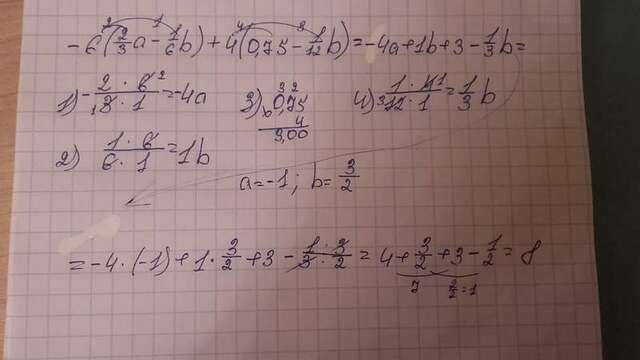 -6(2/3a - 1/6b) + 4(0,75 - 1/12b) = -4a + 1b + 3 - 1/3b =
1) -2·6/3·1 = 4a
3) 0,75
4
3,00
4) 1·4/12·1 = 1/3b
2) 1·6/6·1 = 1b
a = -1; b = 3/2
= -4·(-1) + 1·3/2 + 3 - 1·3/3·2 = 4 + 3/2 + 3 - 1/2 = 8
2/2 = 1